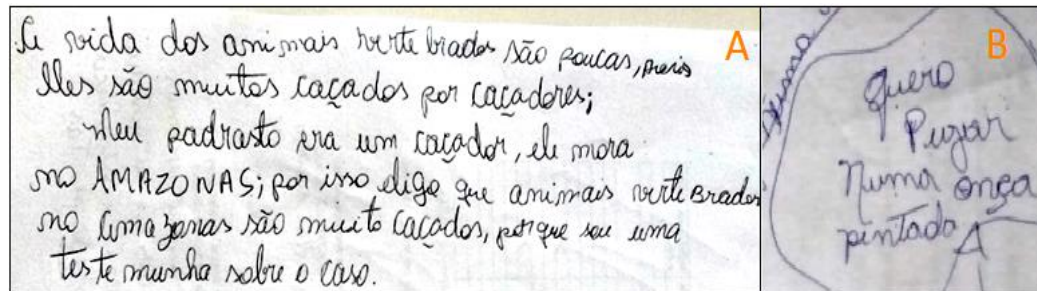 A vida dos animais vertebrados são poucas, pois
Eles são muitos caçados por caçadores;
Meu padrasto era um caçador, ele mora
no AMAZONAS; por isso digo que animais vertebrados
no amazonas são muito caçados, porque sou uma
testemunha sobre o caso.
A
Quero
Pegar
Numa onça
pintada
B